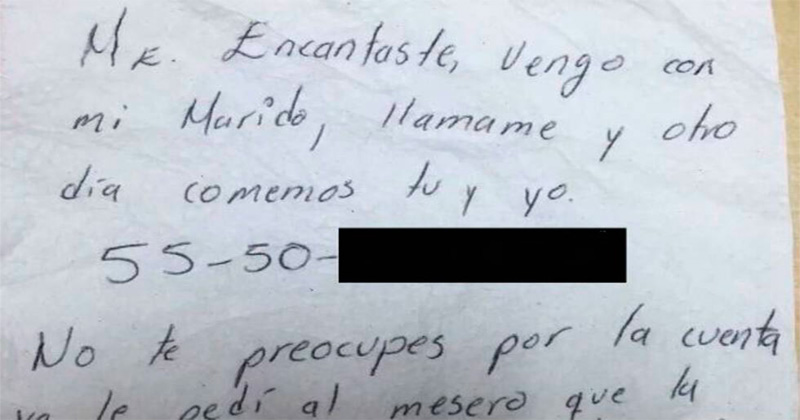 Me. Encantaste, vengo con
mi Marido, llamame y otro
día comemos tu y yo.
55-50-
No te preocupes por la cuenta
ya le pedí al mesero que la